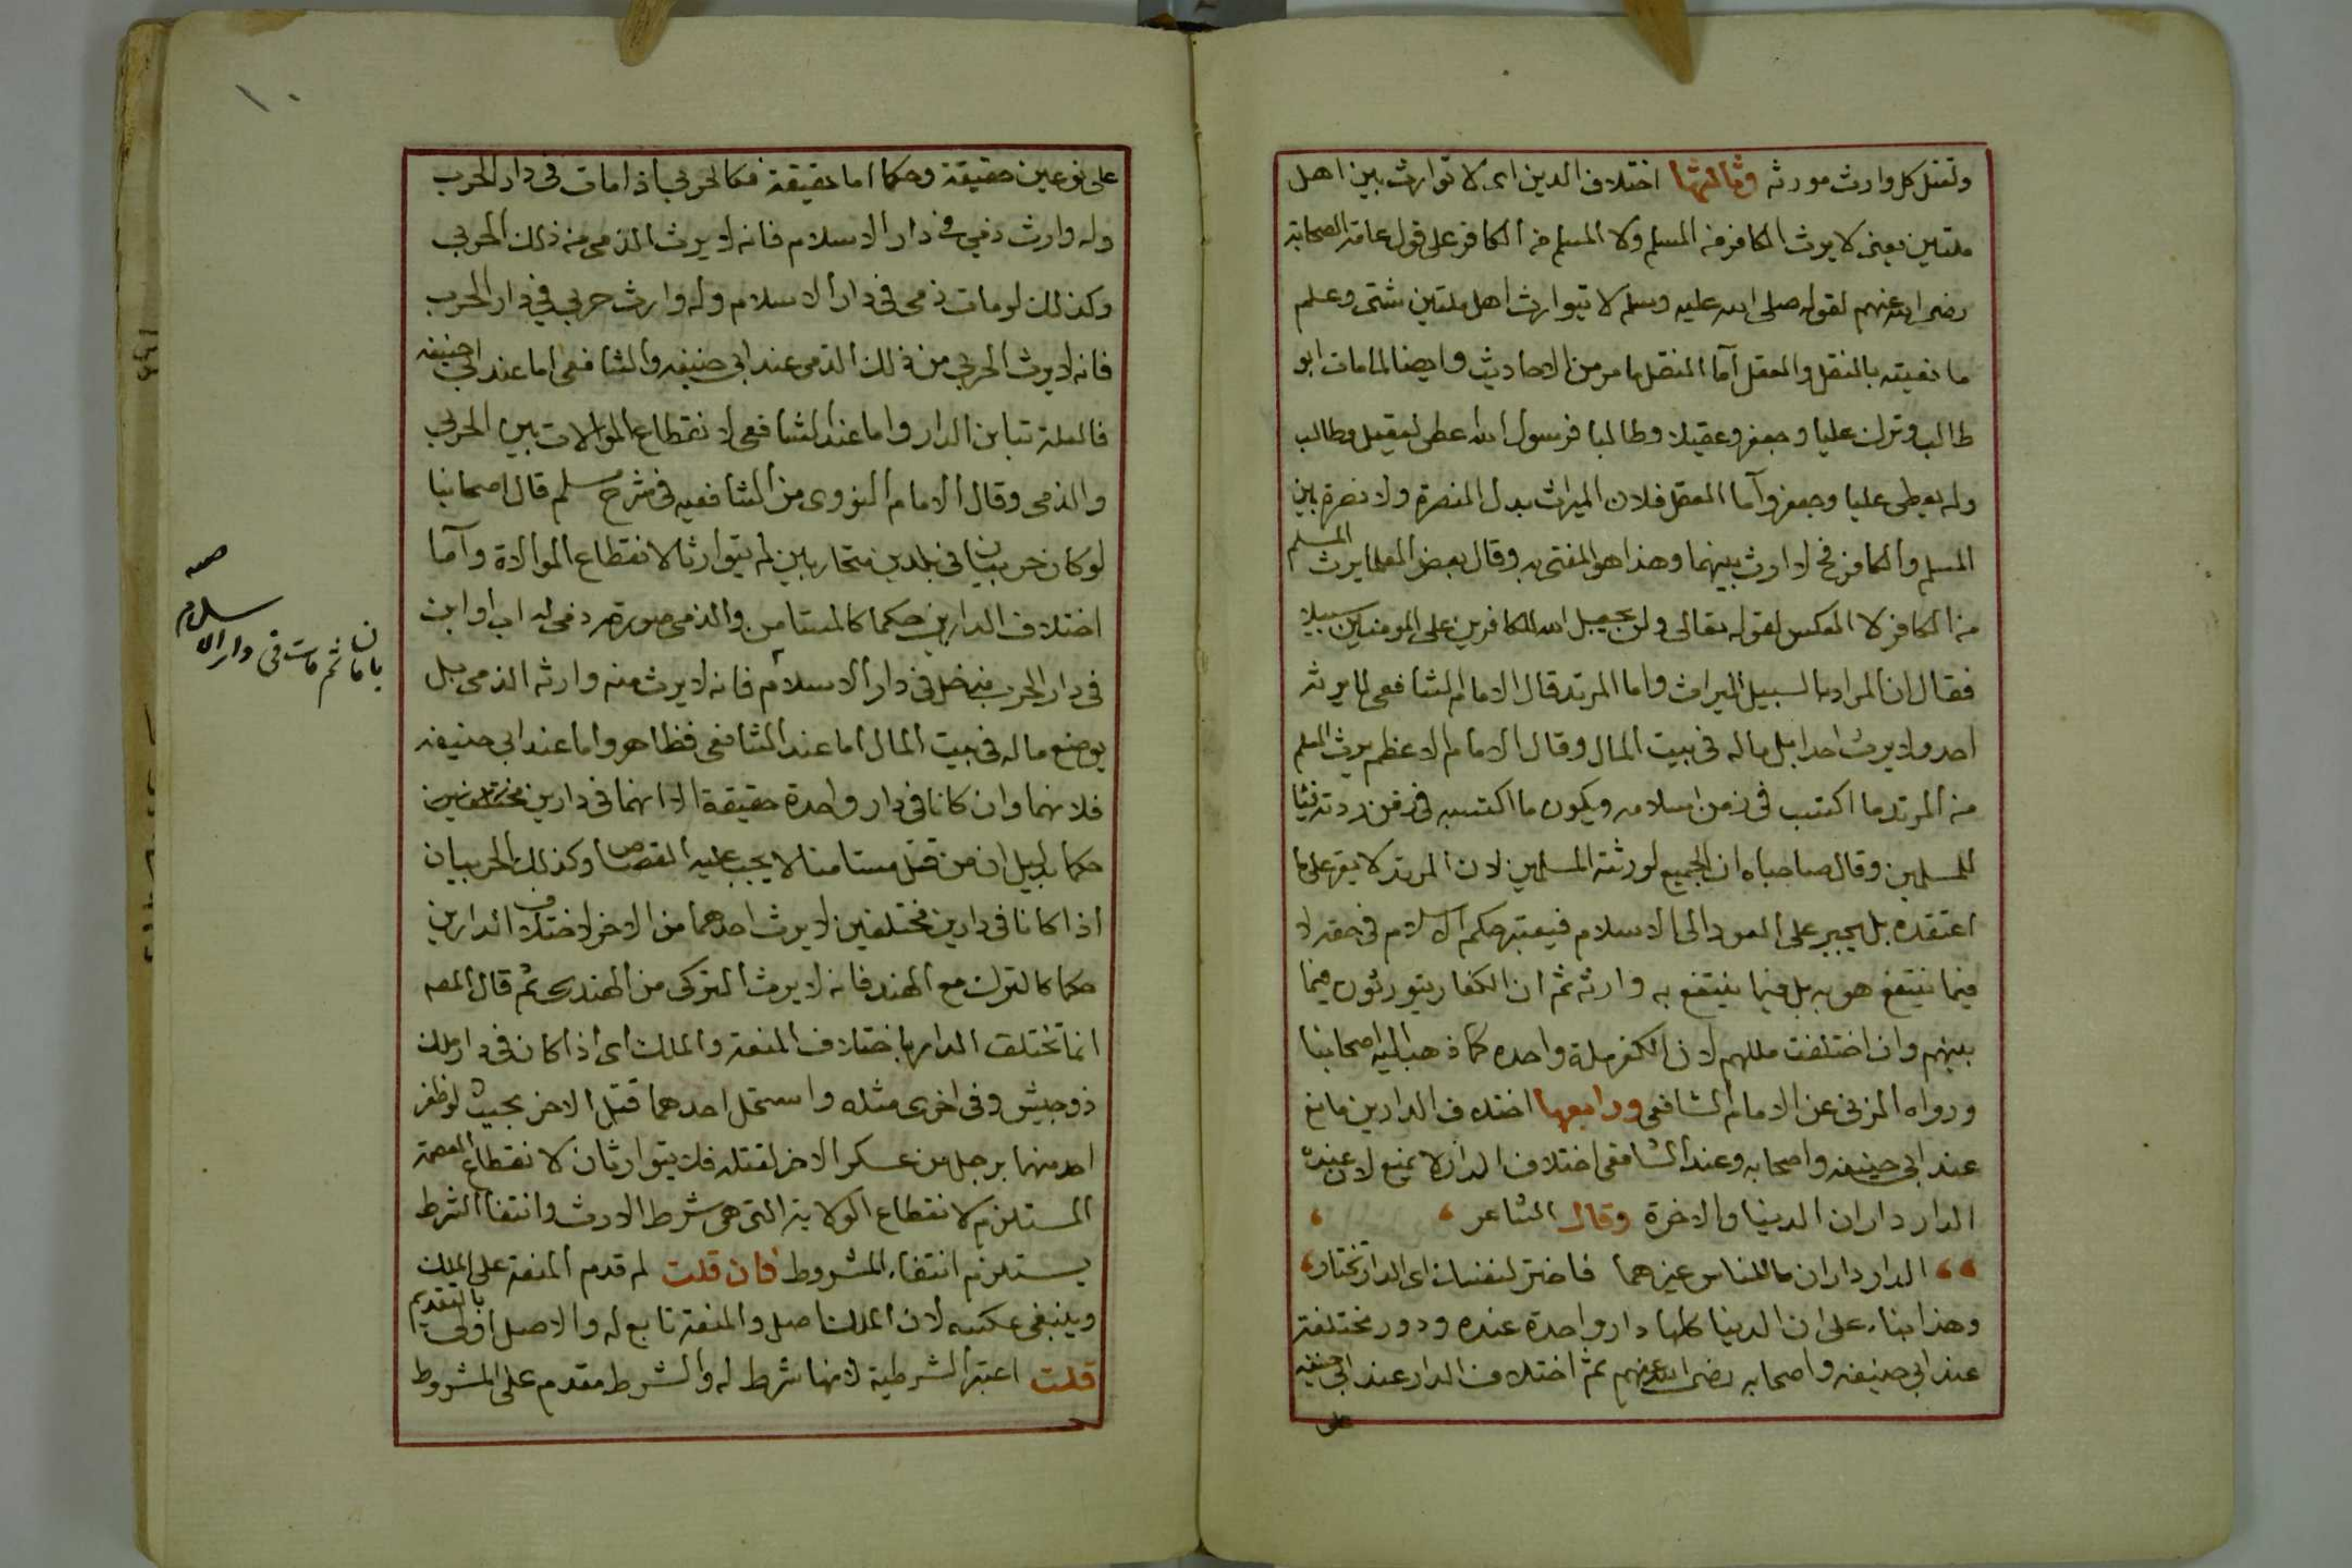 ولقتل كل وارث مورثه وثالثها اختلاف الدين اى لا توارث بين اهل
ملتين يعنى لا يرث الكافر من المسلم ولا المسلم من الكافر على قول عامة الصحابة
رضى الله عنهم لقوله صلى الله عليه وسلم لا يتوارث اهل ملتين شتى وعلم
ما نفيته بالنقل والعقل آما النقل ما مر من الاحاديث وايضا لما مات ابو
طالب وترك عليا وجعفر وعقيلا وطالبا فرسول الله اعطى لعقيل وطالب
ولم يعطى عليا وجعفر وآما العقل فلان الميراث بدل النصرة ولا نصرة بين
المسلم والكافر فح لا ارث بينهما وهذا هو المفتى به وقال بعض العلما يرث المسلم
من الكافر لا العكس لقوله تعالى ولن يجعل الله للكافرين على المومنين سبيلا
فقال ان المراد بالسبيل الميراث واما المرتد قال الامام الشافعى لا يرثه
احد ولا يرث احدا بل ماله فى بيت المال وقال الامام الاعظم يرث المسلم
من المرتد ما اكتسب فى زمن اسلامه ويكون ما اكتسبه فى زمن ردته فيئا
للمسلمين وقال صاحباه ان الجميع لورثته المسلمين لان المرتد لا يقر على ما
اعتقده بل يجبر على العود الى الاسلام فيعتبر حكم الاسلام فى حقه لا
فيما ينتفع هو به بل فيما ينتفع به وارثه ثم ان الكفار يتورثون فيما
بينهم وان اختلفت مللهم لان الكفر ملة واحده كما ذهب اليه اصحابنا
ورواه المزنى عن الامام الشافعى ورابعها اختلاف الدارين مانع
عند ابى حنيفه واصحابه وعند الشافعى اختلاف الدار لا يمنع لان عنده
الدار داران الدينا والاخرة وقال الشاعر
الدار داران ما للناس غيرهما فاختر لنفسك اى الدار تختار
وهذا بناء على ان الدينا كلها دار واحدة عنده ودور مختلفة
عند ابى حنيفه واصحابه رضى الله عنهم ثم اختلاف الدار عند ابى حنيفه
على
١٠
على نوعين حقيقة وحكما اما حقيقة فكالحربى اذا مات فى دار الحرب
وله وارث ذمى فى دار الاسلام فانه لا يرث الذمى من ذلك الحربى
وكذلك لو مات ذمى فى دار الاسلام وله وارث حربى فى دار الحرب
فانه لا يرث الحربى من ذلك الذمى عند ابى حنيفه والشافعى اما عند ابى حنيفه
فالعلة تباين الدار واما عند الشافعى لانقطاع الموالات بين الحربى
والذمى وقال الامام النووى من الشافعيه فى شرح مسلم قال اصحابنا
لو كان حربيان فى بلدين متحاربين لم يتوارثا لانقطاع الموالاة وآما
اختلاف الدارين حكما كالمستامن والذمى صورته ذمى له اب او ابن
فى دار الحرب فدخل فى دار الاسلام فانه لا يرث منه وارثه الذمى بل
يوضع ماله فى بيت المال اما عند الشافعى فظاهر واما عند ابى حنيفه
فلانهما وان كانا فى دار واحدة حقيقة الا انهما فى دارين مختلفين
حكما بدليل ان من قتل مستامنا لا يجب عليه القصاص وكذلك الحربيان
اذا كانا فى دارين مختلفين لا يرث احدهما من الاخر لاختلاف الدارين
حكما كالترك مع الهند فانه لا يرث التركى من الهندى ثم قال المصه
انما تختلف الدار باختلاف المنعة والملك اى اذا كان فى دار ملك
ذو جيش وفى اخرى مثله واستحل احدهما قتل الاخر بحيث لو ظفر
احد منهما برجل من عسكر الاخر لقتله فلا يتوارثان لانقطاع العصمة
المستلزم لانقطاع الولاية التى هى شرط الارث وانتفا الشرط
يستلزم انتفاء المشروط فان قلت لم قدم المنعة على الملك
وينبغى عكسه لان الملك اصل والمنعة تابع له والاصل اولى بالتقديم
قلت اعتبر الشرطية لانها شرط له والشرط مقدم على المشروط
بامان ثم مات فى دار الاسلام
صصه